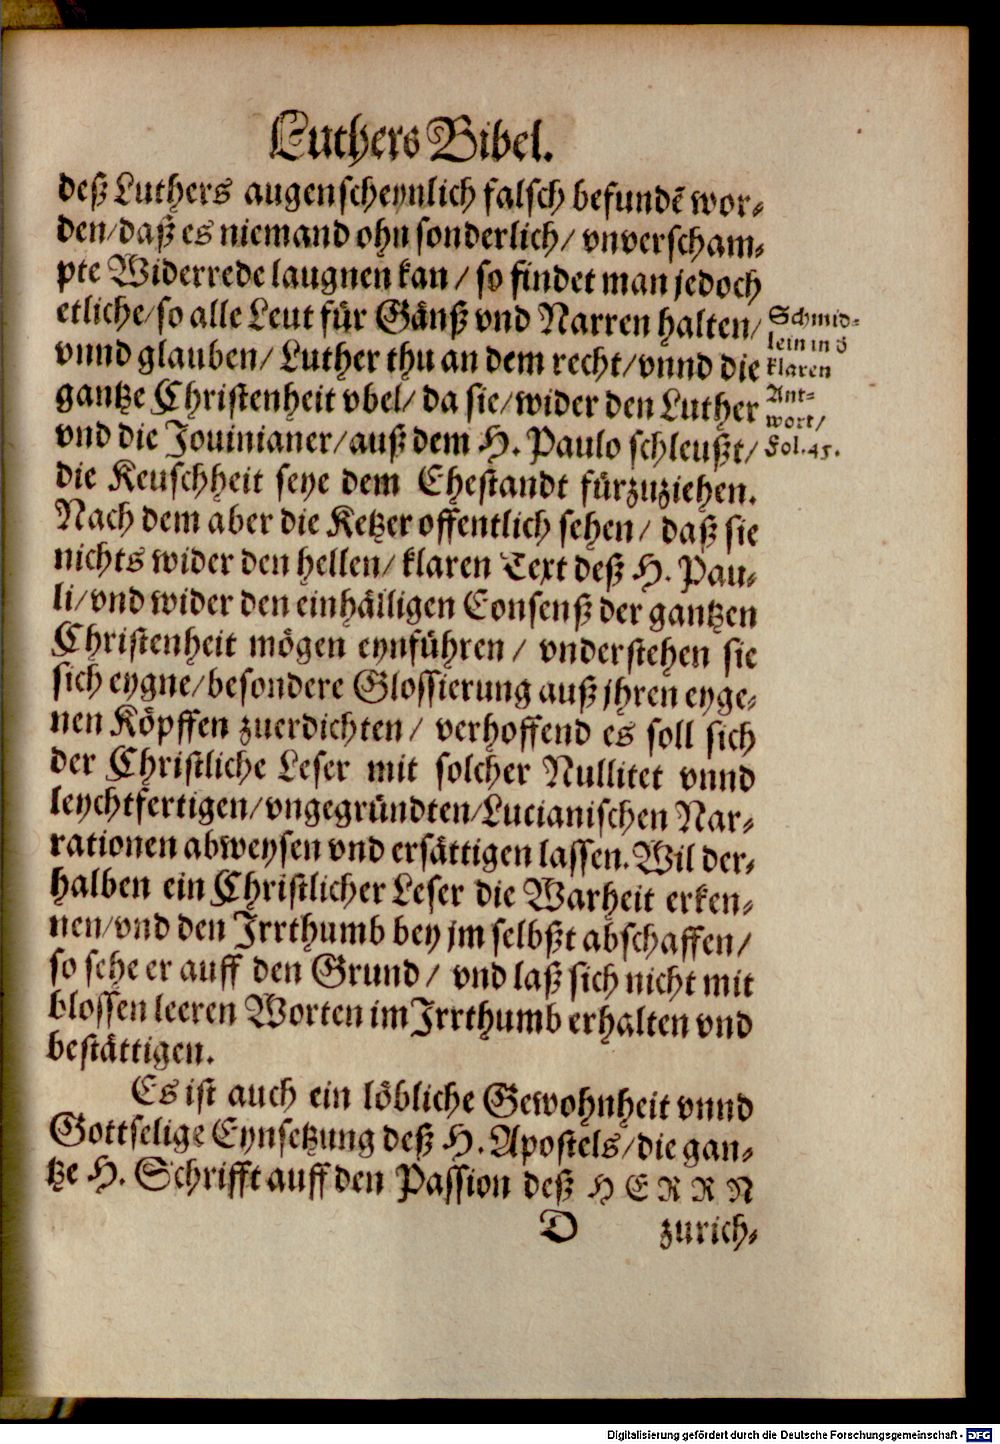 Luthers Bibel.
deß Luthers augenscheynlich falsch befundē wor⸗
den/daß es niemand ohn sonderlich/ vnverscham⸗
pte Widerrede laugnen kan / so findet man jedoch
etliche/so alle Leut für Gänß vnd Narren halten/
vnnd glauben/ Luther thu an dem recht/vnnd die
gantze Christenheit vbel/ da sie/wider den Luther
vnd die Jouinianer/auß dem H. Paulo schleußt/
die Keuschheit seye dem Ehestandt fürzuziehen.
Nach dem aber die Ketzer offentlich sehen/ daß sie
nichts wider den hellen/ klaren Text deß H. Pau⸗
li/vnd wider den einhälligen Consenß der gantzen
Christenheit mögen eynführen / vnderstehen sie
sich eygne/besondere Glossierung auß jhren eyge⸗
nen Köpffen zuerdichten/ verhoffend es soll sich
der Christliche Leser mit solcher Nullitet vnnd
leychtfertigen/vngegründten/Lucianischen Nar⸗
rationen abweysen vnd ersättigen lassen. Wil der⸗
halben ein Christlicher Leser die Warheit erken⸗
nen/vnd den Irrthumb bey jm selbßt abschaffen/
so sehe er auff den Grund/ vnd laß sich nicht mit
blossen leeren Worten im Irrthumb erhalten vnd
bestättigen.
Es ist auch ein löbliche Gewohnheit vnnd
Gottselige Eynsetzung deß H. Apostels/die gan⸗
tze H. Schrifft auff den Passion deß HERRN
D zurich⸗
Schmid⸗
lein in ð
klaren
Ant⸗
wort/
Fol.45.
Digitalisierung gefördert durch die Deutsche Forschungsgemeinschaft - DFG